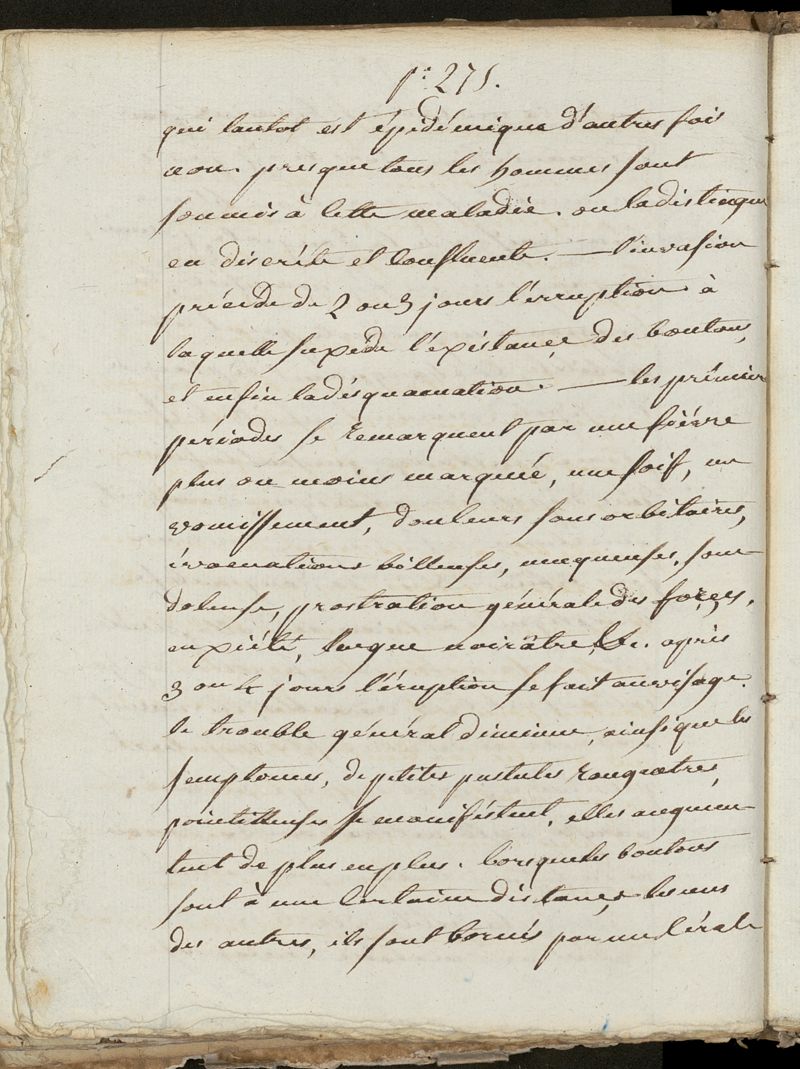 p. 275.
qui tantot est épidémique d'autres fois
non. presque tous les hommes sont
soumis à cette maladie. on la distingue
en discréte et confluente. — l'invasion
précede de 2 ou 3 jours l'erruption à
laquelle succéde l'éxistance des boutons,
et enfin la désquamation. — les prémier
périodes se remarquent par une fiévre
plus ou moins marquée, une soif, un
vomissement, douleurs sous orbitaires,
évacuations bilieuses, muqueuses,
prostration générale des forces,
anxiété, langue noirâtre, &c. aprés
3 ou 4 jours l'éruption se fait au visage.
le trouble général diminue, ainsi que les
symptomes, de petites pustules rougeatres,
pointilleuses se maniféstent, elles augmen
tent de plus en plus. lorsque les boutons
sont à une certaine distance les uns
des autres, ils sont bornés par un cércle